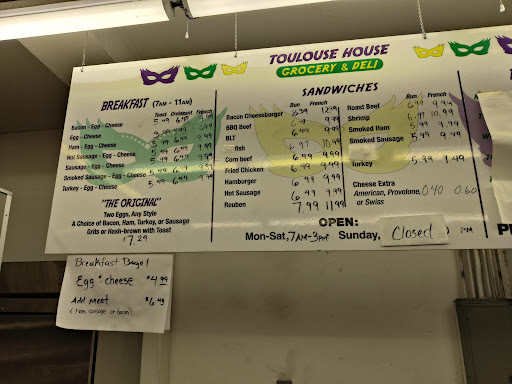 TOULOUSE HOUSE
GROCERY & DELI
BREAKFAST (7AM - 11AM)
Toast Croissant French
Bacon - Egg - Cheese 5.49 6.49 9.99
Egg - Cheese
Ham - Egg - Cheese 5.49 6.49 9.99
Hot Sausage - Egg - Cheese 5.49 6.49 9.99
Sausage - Egg - Cheese 5.49 6.49 9.99
Smoked Sausage - Egg - Cheese 5.49 6.49 9.99
Turkey - Egg - Cheese 5.49 6.49 9.99
"THE ORIGINAL"
Two Eggs, Any Style
A Choice of Bacon, Ham, Turkey, or Sausage
Grits or Hash-brown with Toast
$7.29
SANDWICHES
Bun French
Bacon Cheeseburger 8.39 12.99
BBQ Beef 9.99
BLT 6.49 9.99
fish 6.97 10.99
Corn beef 6.49 9.99
Fried Chicken 6.49 9.99
Hamburger 6.49 9.99
Hot Sausage 6.49 9.99
Reuben 7.99 11.99
Bun French
Roast Beef 6.49 9.99
Shrimp 6.97 10.99
Smoked Ham 5.99 9.49
Smoked Sausage 9.99
Turkey 5.99 9.49
Cheese Extra
American, Provolone, 0.40 0.60
or Swiss
OPEN:
Mon-Sat, 7AM-3PM Sunday, Closed
Breakfast Bagel
Egg & cheese $4.99
Add meat $6.49
(ham, sausage or bacon)